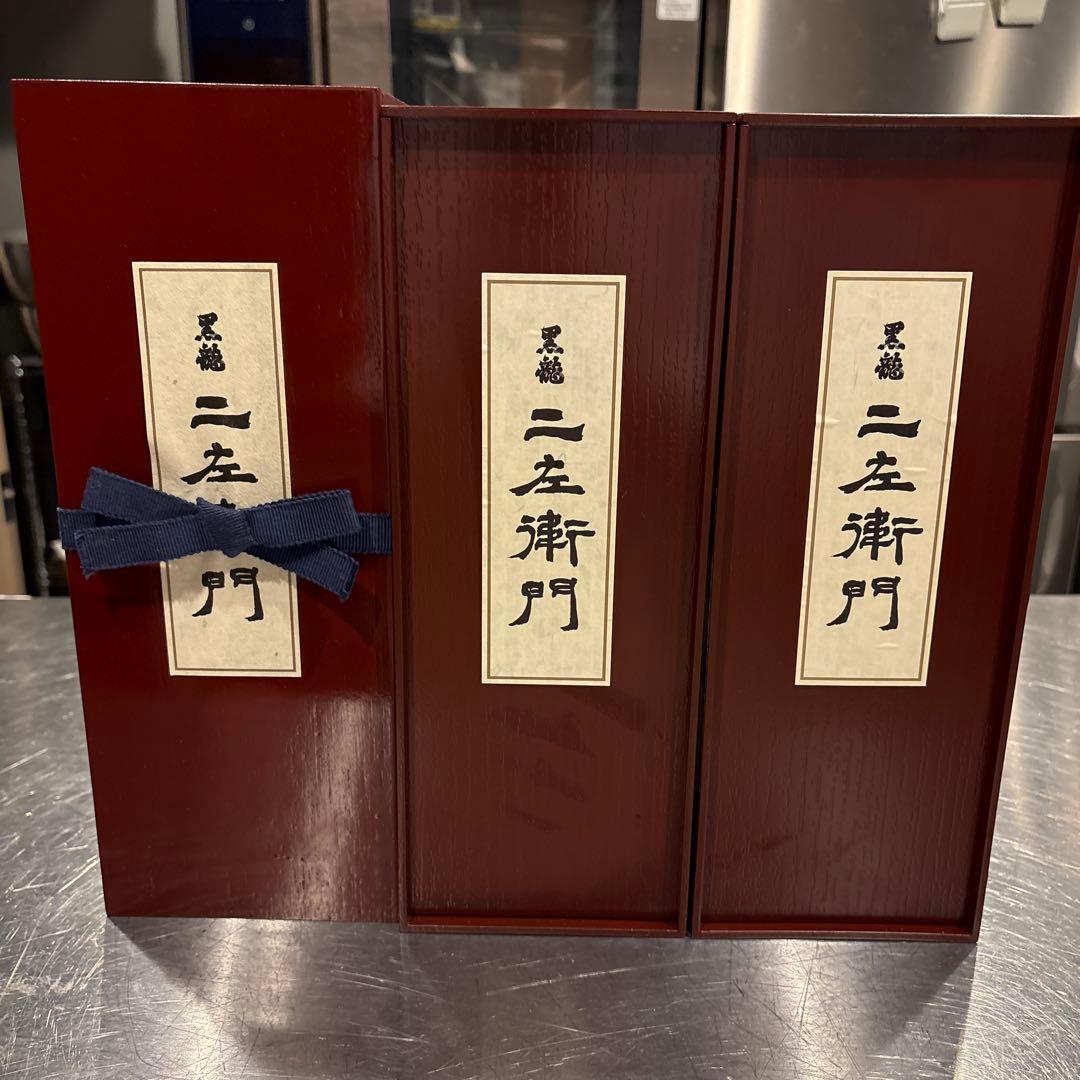 黒龍
二左
門
黒龍
二左衛門
黒龍
二左衛門